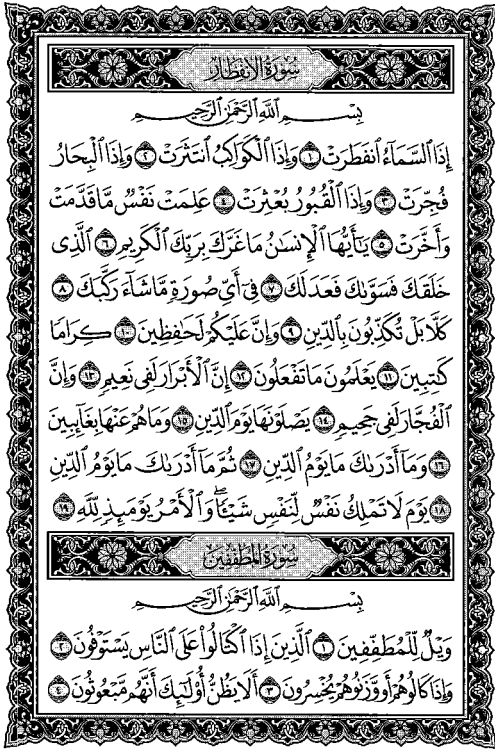 سُورَةُ الانفِطَارِ
بِسْمِ اللَّهِ الرَّحْمَٰنِ الرَّحِيمِ
إِذَا ٱلسَّمَآءُ ٱنفَطَرَتْ ١ وَإِذَا ٱلْكَوَاكِبُ ٱنتَثَرَتْ ٢ وَإِذَا ٱلْبِحَارُ
فُجِّرَتْ ٣ وَإِذَا ٱلْقُبُورُ بُعْثِرَتْ ٤ عَلِمَتْ نَفْسٌ مَّا قَدَّمَتْ
وَأَخَّرَتْ ٥ يَٰٓأَيُّهَا ٱلْإِنسَٰنُ مَا غَرَّكَ بِرَبِّكَ ٱلْكَرِيمِ ٦ ٱلَّذِى
خَلَقَكَ فَسَوَّىٰكَ فَعَدَلَكَ ٧ فِىٓ أَىِّ صُورَةٍ مَّا شَآءَ رَكَّبَكَ ٨
كَلَّا بَلْ تُكَذِّبُونَ بِٱلدِّينِ ٩ وَإِنَّ عَلَيْكُمْ لَحَٰفِظِينَ ١٠ كِرَامًا
كَٰتِبِينَ ١١ يَعْلَمُونَ مَا تَفْعَلُونَ ١٢ إِنَّ ٱلْأَبْرَارَ لَفِى نَعِيمٍ ١٣ وَإِنَّ
ٱلْفُجَّارَ لَفِى جَحِيمٍ ١٤ يَصْلَوْنَهَا يَوْمَ ٱلدِّينِ ١٥ وَمَا هُمْ عَنْهَا بِغَآئِبِينَ
١٦ وَمَآ أَدْرَىٰكَ مَا يَوْمُ ٱلدِّينِ ١٧ ثُمَّ مَآ أَدْرَىٰكَ مَا يَوْمُ ٱلدِّينِ
١٨ يَوْمَ لَا تَمْلِكُ نَفْسٌ لِّنَفْسٍ شَيْـًٔا ۖ وَٱلْأَمْرُ يَوْمَئِذٍ لِّلَّهِ ١٩
سُورَةُ المُطَفِّفِينَ
بِسْمِ اللَّهِ الرَّحْمَٰنِ الرَّحِيمِ
وَيْلٌ لِّلْمُطَفِّفِينَ ١ ٱلَّذِينَ إِذَا ٱكْتَالُوا۟ عَلَى ٱلنَّاسِ يَسْتَوْفُونَ ٢
وَإِذَا كَالُوهُمْ أَو وَّزَنُوهُمْ يُخْسِرُونَ ٣ أَلَا يَظُنُّ أُو۟لَٰٓئِكَ أَنَّهُم مَّبْعُوثُونَ ٤